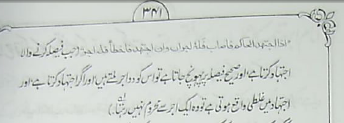 ۳۴۱
"اذا اجتهد الحاكم فاصاب فلهٗ اجران وان اجتهد فاخطأ فلهٗ اجر" (جب فیصلہ کرنے والا
اجتہاد کرتا ہے اور صحیح فیصلہ پر پہونچ جاتا ہے تو اس کو دو اجر ملتے ہیں اور اگر اجتہاد کرتا ہے اور
اجتہاد میں غلطی واقع ہوتی ہے تو وہ ایک اجر سے محروم نہیں رہتا)